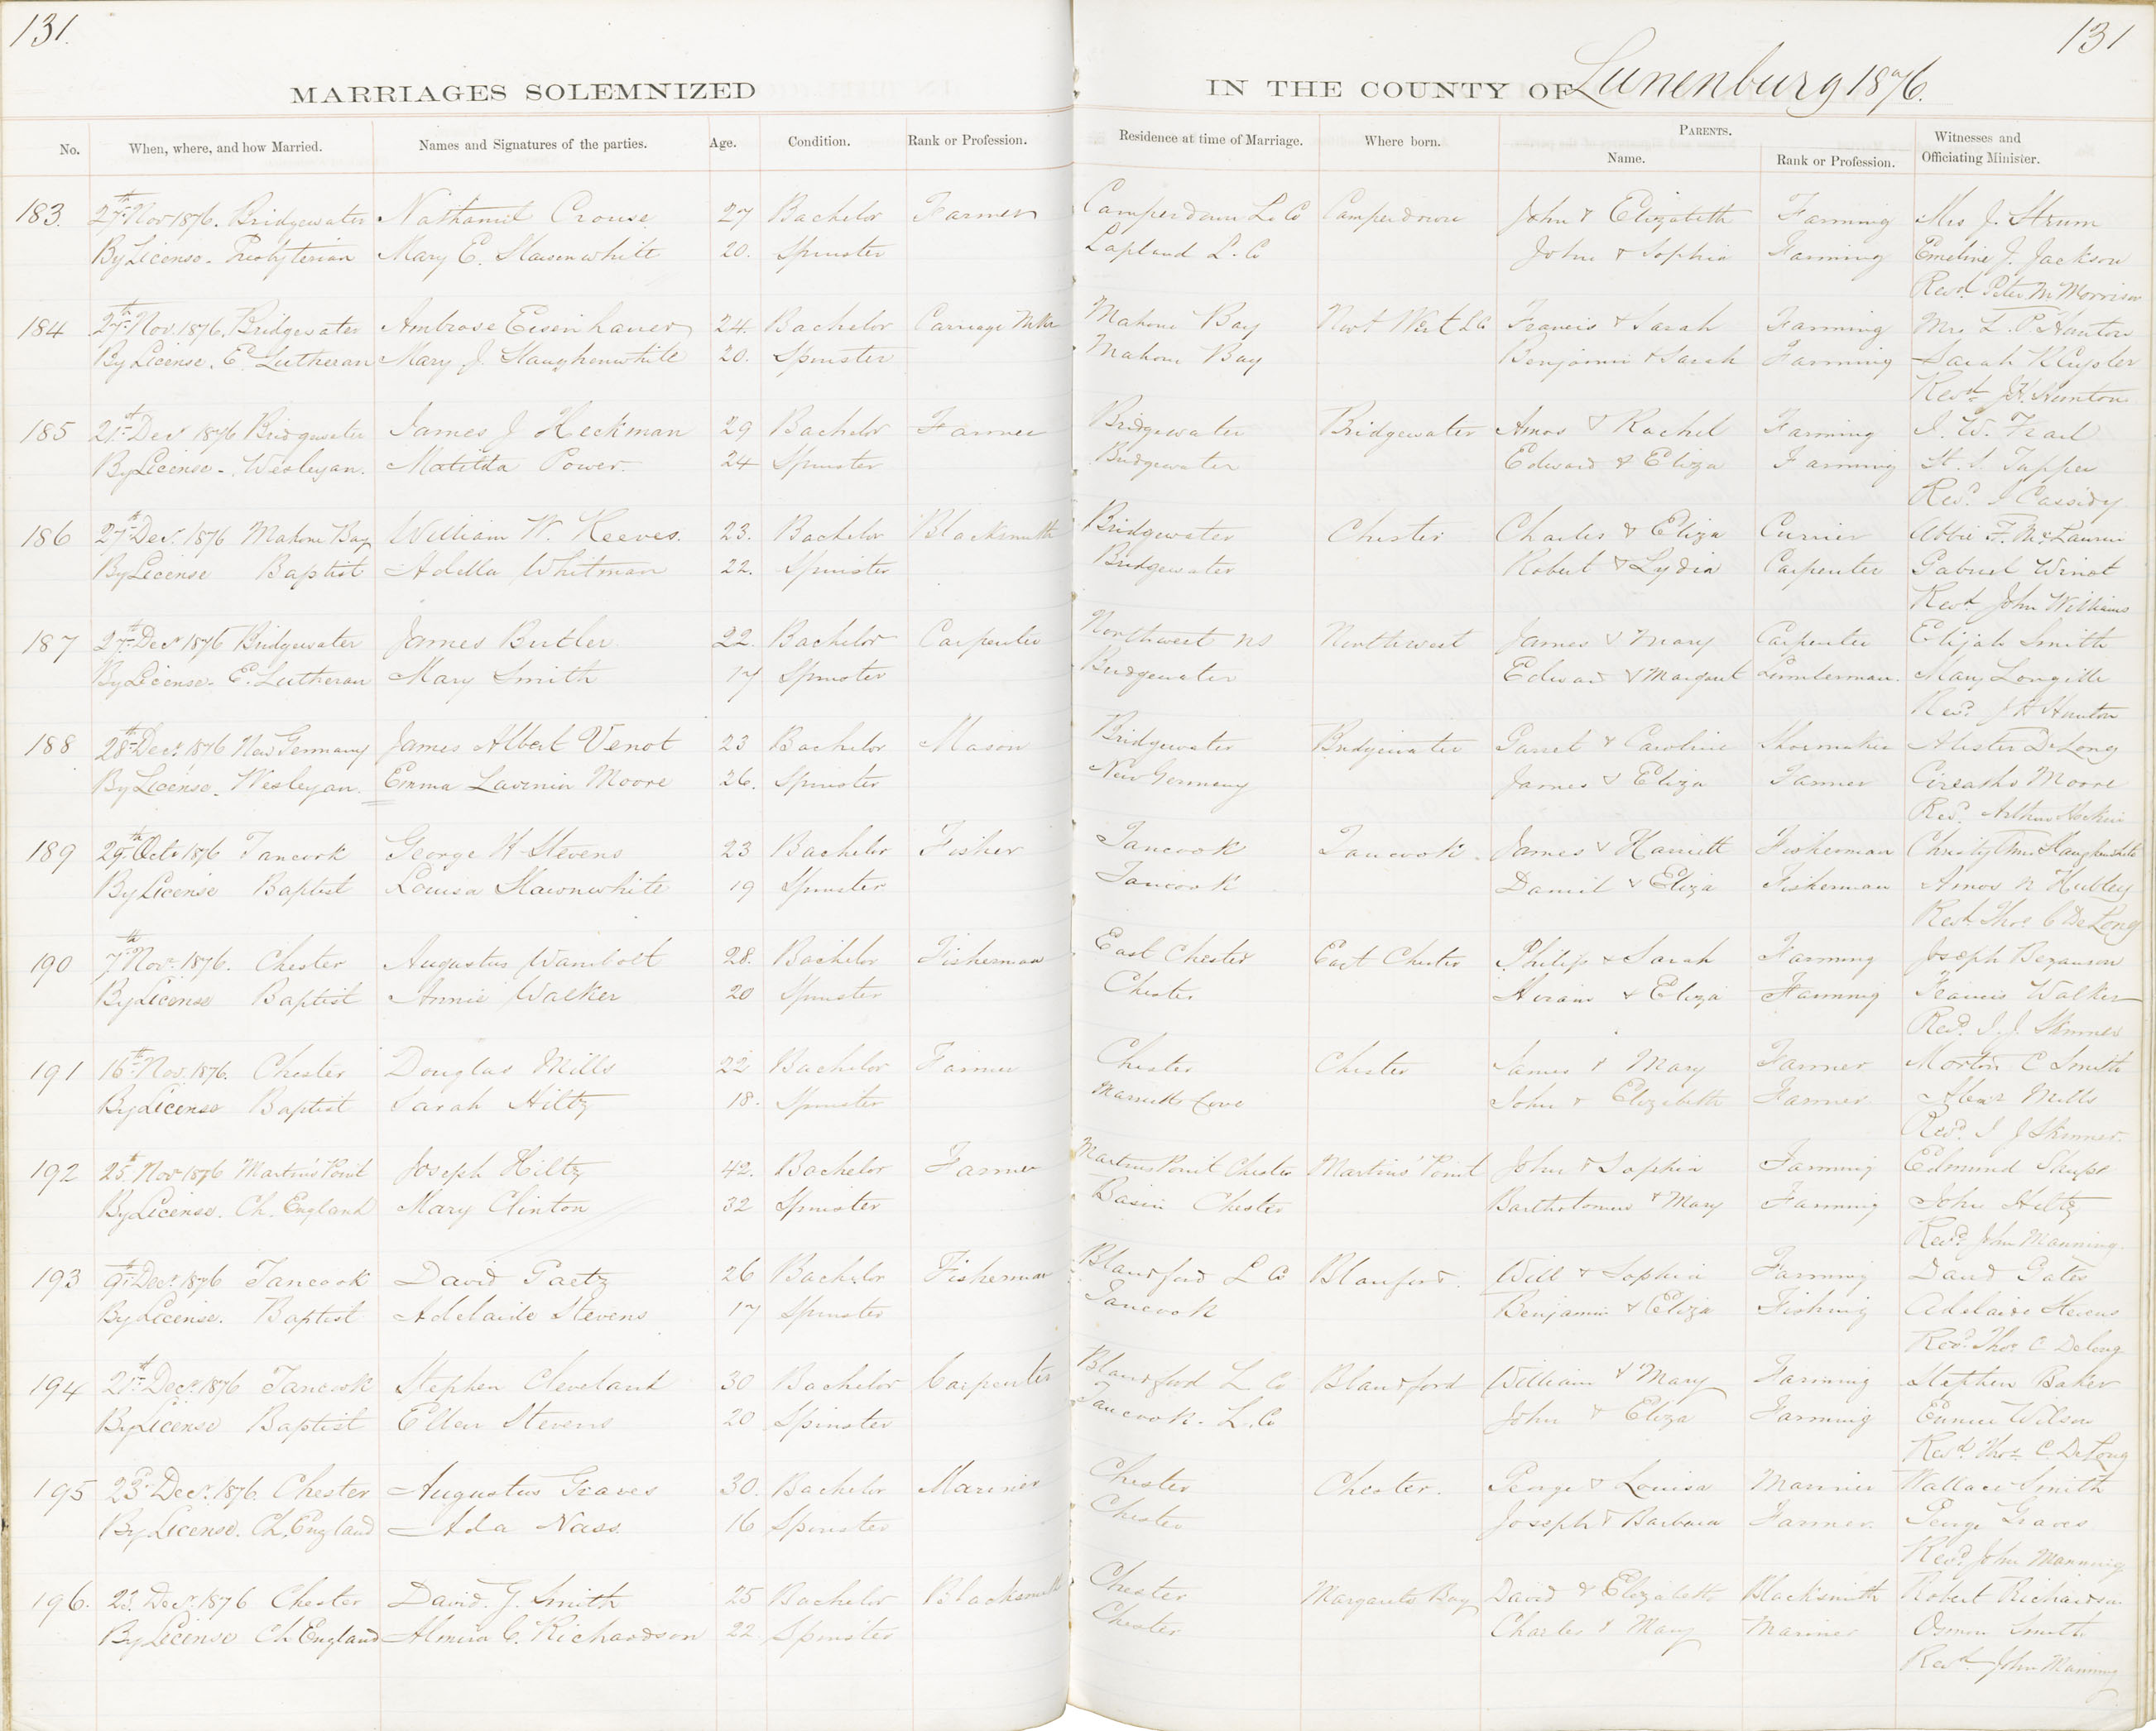 131.
131
MARRIAGES SOLEMNIZED IN THE COUNTY OF Lunenburg 1876.
No. When, where, and how Married. Names and Signatures of the parties. Age. Condition. Rank or Profession. Residence at time of Marriage. Where born. PARENTS. Name. Rank or Profession. Witnesses and Officiating Minister.
183. 27th Nov 1876. Bridgewater Nathaniel Crouse 27 Bachelor Farmer Camperdown L. Co Camperdown John & Elizabeth Farming Mrs J. Strum
By License - Presbyterian Mary E. Slawenwhite 20. Spinster Lapland L. Co John & Sophia Farming Emeline J. Jackson
Revd Peter M Morrison
184 27th Nov. 1876. Bridgewater Ambrose Eisenhauer 24. Bachelor Carriage Mkr Mahone Bay Nort West LCo Francis & Sarah Farming Mrs L. P Hunton
By License. E. Lutheran Mary J. Slaughenwhite 20. Spinster Mahone Bay Benjamin & Sarah Farming Sarah
Revd J H. Hunton
185 21st Decr 1876 Bridgewater James J Heckman 29 Bachelor Farmer Bridgewater Bridgewater Amos & Rachel Farming J. W. Frail
By License - Wesleyan. Matilda Power. 24 Spinster Bridgewater Edward & Eliza Farming Tupper
Revd J Cassidy
186 27th Decr. 1876 Mahone Bay William W. Keeves. 23. Bachelor Blacksmith Bridgewater Chester Charles & Eliza Currier Abbie F. McLaurin
By License Baptist Adella Whitman 22. Spinster Bridgewater Robert & Lydia Carpenter Gabriel Winot
Revd John Williams
187 27th Decr 1876 Bridgewater James Butler 22. Bachelor Carpenter Northwest NS Northwest James & Mary Carpenter Elijah Smith
By License - E. Lutheran Mary Smith 17 Spinster Bridgewater Edward & Margaret Lumberman. Mary Longille
Revd J H Hunton
188 28th Decr. 1876 New Germany James Albert Venot 23 Bachelor Mason Bridgewater Bridgewater Garret & Caroline Shoemaker Alister DeLong
By License. Wesleyan. Emma Lavinia Moore 26. Spinster New Germany James & Eliza Farmer Moore
Revd. Arthur Hockin
189 29th Octo 1876 Tancook George H Stevens 23 Bachelor Fisher Tancook Tancook. James & Harriett Fisherman
By License Baptist Louisa Slawonwhite 19 Spinster Tancook Daniel & Eliza Fisherman Amos N Hubley
Revd Thos. C DeLong
190 7th Nov. 1876. Chester Augustus Wambolt 28. Bachelor Fisherman East Chester East Chester Philip & Sarah Farming Joseph Bezanson
By License Baptist Annie Walker 20 Spinster Chester Hiram & Eliza Farming Francis Walker
Revd. I. J. Skinner
191 16th Nov. 1876. Chester Douglas Mills 22 Bachelor Farmer Chester Chester James & Mary Farmer Morton C Smith
By License Baptist Sarah Hiltz 18. Spinster Marriotts Cove John & Elizabeth Farmer Mills
Revd. I J Skinner.
192 25th Nov 1876 Martin's Point Joseph Hiltz 42. Bachelor Farmer Martins Point Chester Martins' Point John & Sophia Farming Edmund Skupe
By License. Ch. England Mary Clinton 32 Spinster Basin Chester Bartholomew & Mary Farming John Hiltz
Revd. John Manning.
193 9th Decr. 1876 Tancook David Paetz 26 Bachelor Fisherman Blandford L Co Blanford. Will & Sophia Farming David Gates
By License. Baptist Adelaide Stevens 17 Spinster Tancook Benjamin & Eliza Fishing Adelaide Stevens
Revd. Thos C Delong
194 21st Decr. 1876 Tancook Stephen Cleveland 30 Bachelor Carpenter Blandford L Co Blandford William & Mary Farming Stephen Baker
By License Baptist Ellen Stevens 20 Spinster Tancook. L. Co John & Eliza Farming Eunice Wilson
Revd Thos. C. DeLong
195 23d Decr. 1876. Chester Augustus Graves 30. Bachelor Mariner Chester Chester. George & Louisa Mariner Wallace Smith
By License. Ch. England Ada Nass. 16 Spinster Chester Joseph & Barbara Farmer. George Graves
Revd John Manning
196. 23. Decr. 1876 Chester David. G. Smith 25 Bachelor Blacksmith Chester Margarets Bay David & Elizabeth Blacksmith Robert Richardson
By License Ch England Almira C. Richardson 22 Spinster Chester Charles & Mary Mariner Osmon Smith
Revd John Manning